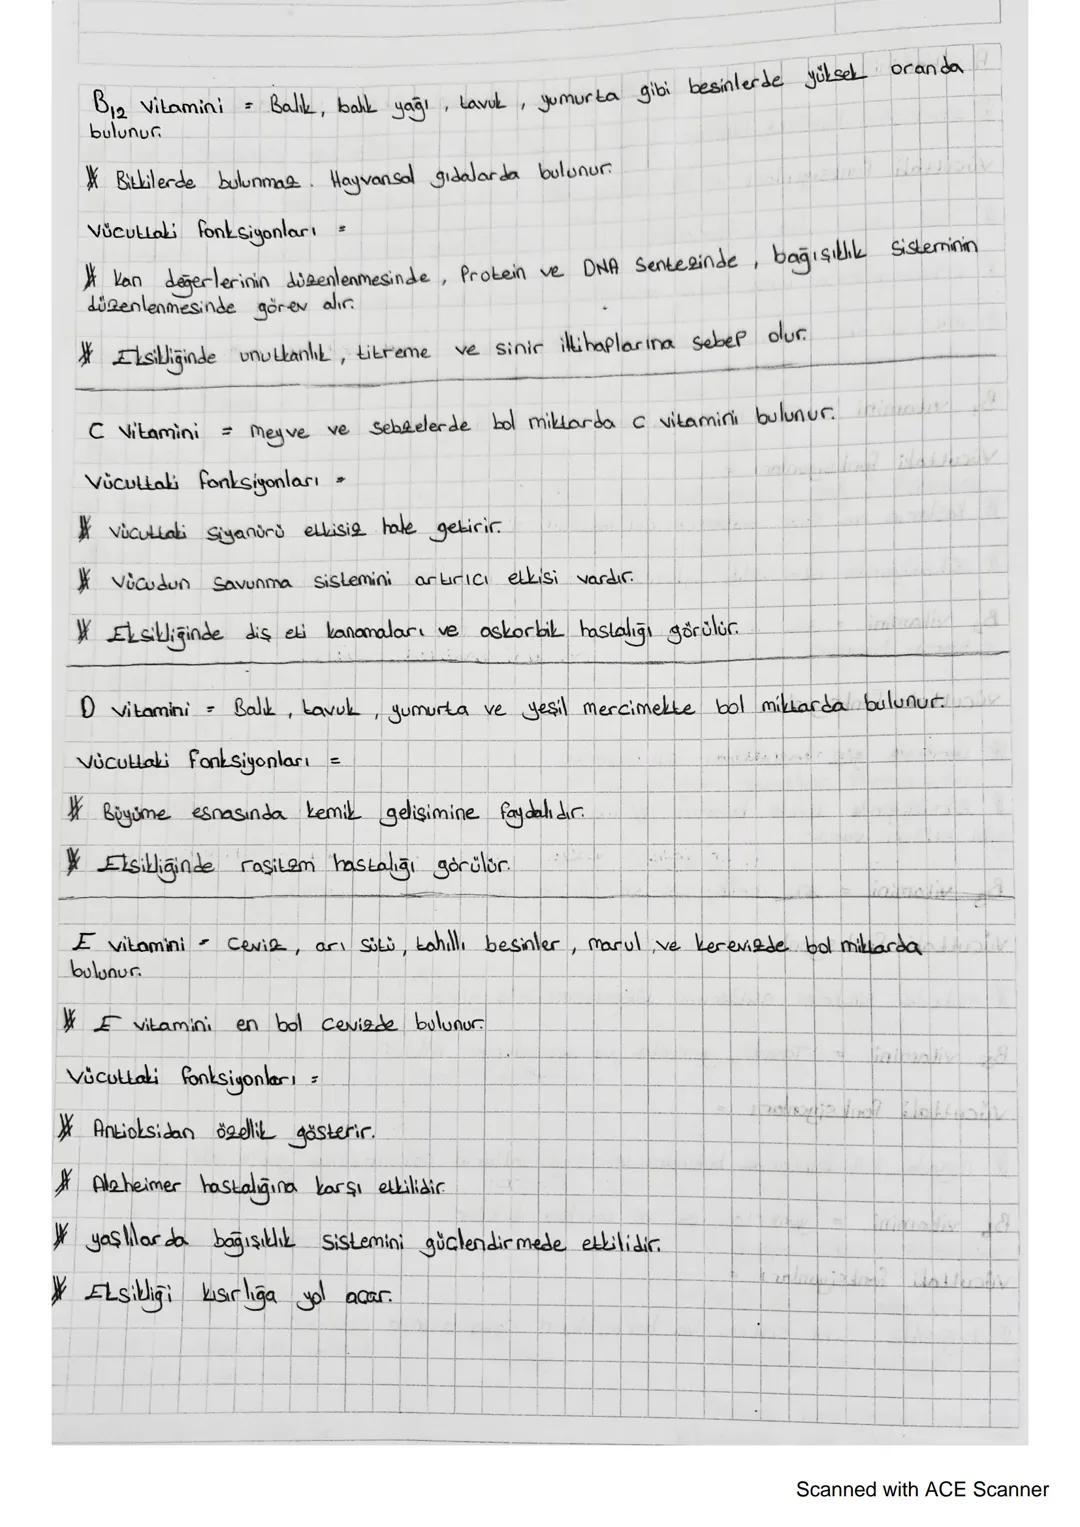 B12 vitamini = Balık, balık yağı, tavuk, yumurta gibi besinlerde yüksek oranda
bulunur.
* Bitkilerde bulunmaz. Hayvansal gıdalarda bulunur.
Vücuttaki fonksiyonları =
* Kan değerlerinin düzenlenmesinde, Protein ve DNA Sentezinde, bağışıklık sisteminin
düzenlenmesinde görev alır.
* Eksikliğinde unutkanlık, titreme ve sinir iltihaplarına sebep olur.
C Vitamini = meyve ve sebzelerde bol miktarda C vitamini bulunur.
Vücuttaki fonksiyonları =
* Vücuttaki siyanürü etkisiz hale getirir.
* Vücudun savunma sistemini artırıcı etkisi vardır.
* Eksikliğinde diş eti kanamaları ve askorbik hastalığı görülür.
D vitamini = Balık, tavuk, yumurta ve yeşil mercimekte bol miktarda bulunur.
Vücuttaki fonksiyonları =
* Büyüme esnasında kemik gelişimine faydalıdır.
* Eksikliğinde raşitzm hastalığı görülür.
E vitamini = Ceviz, arı sütü, tahıllı besinler, marul ve kerevizde bol miktarda
bulunur.
* E vitamini en bol cevizde bulunur.
Vücuttaki fonksiyonları =
* Antioksidan özellik gösterir.
* Alzheimer hastalığına karşı etkilidir.
* yaşlılarda bağışıklık sistemini güçlendirmede etkilidir.
* Eksikliği kısırlığa yol açar.
Scanned with ACE Scanner